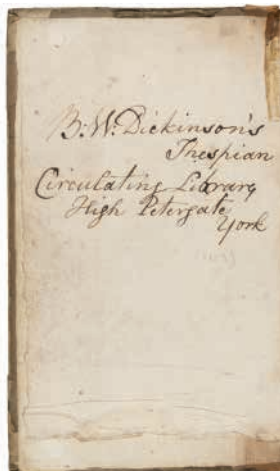 B: W: Dickinson's
Thespian
Circulating Library
High Petergate
York